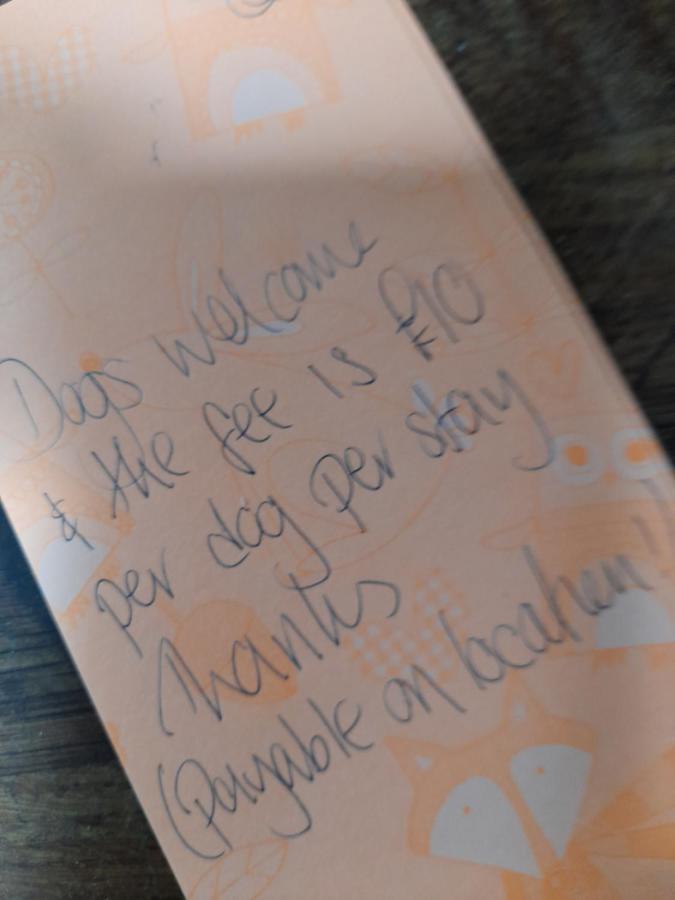 Dogs welcome
& the fee is £10
per dog per stay
Thanks
(Payable on location!)